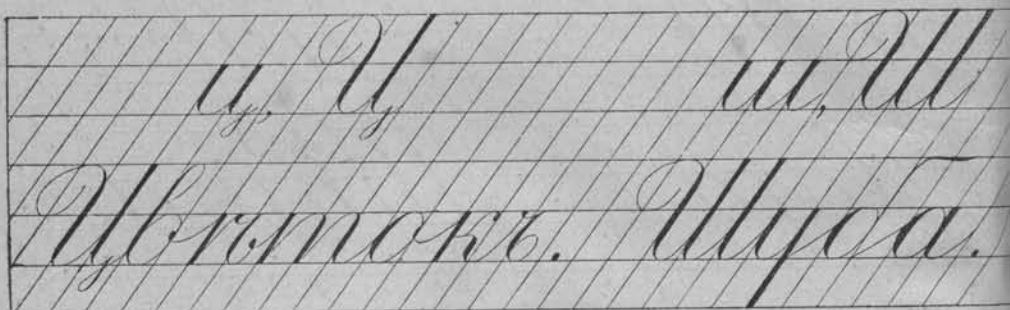 ц, Ц ш, Ш
Цвѣтокъ. Шуба.